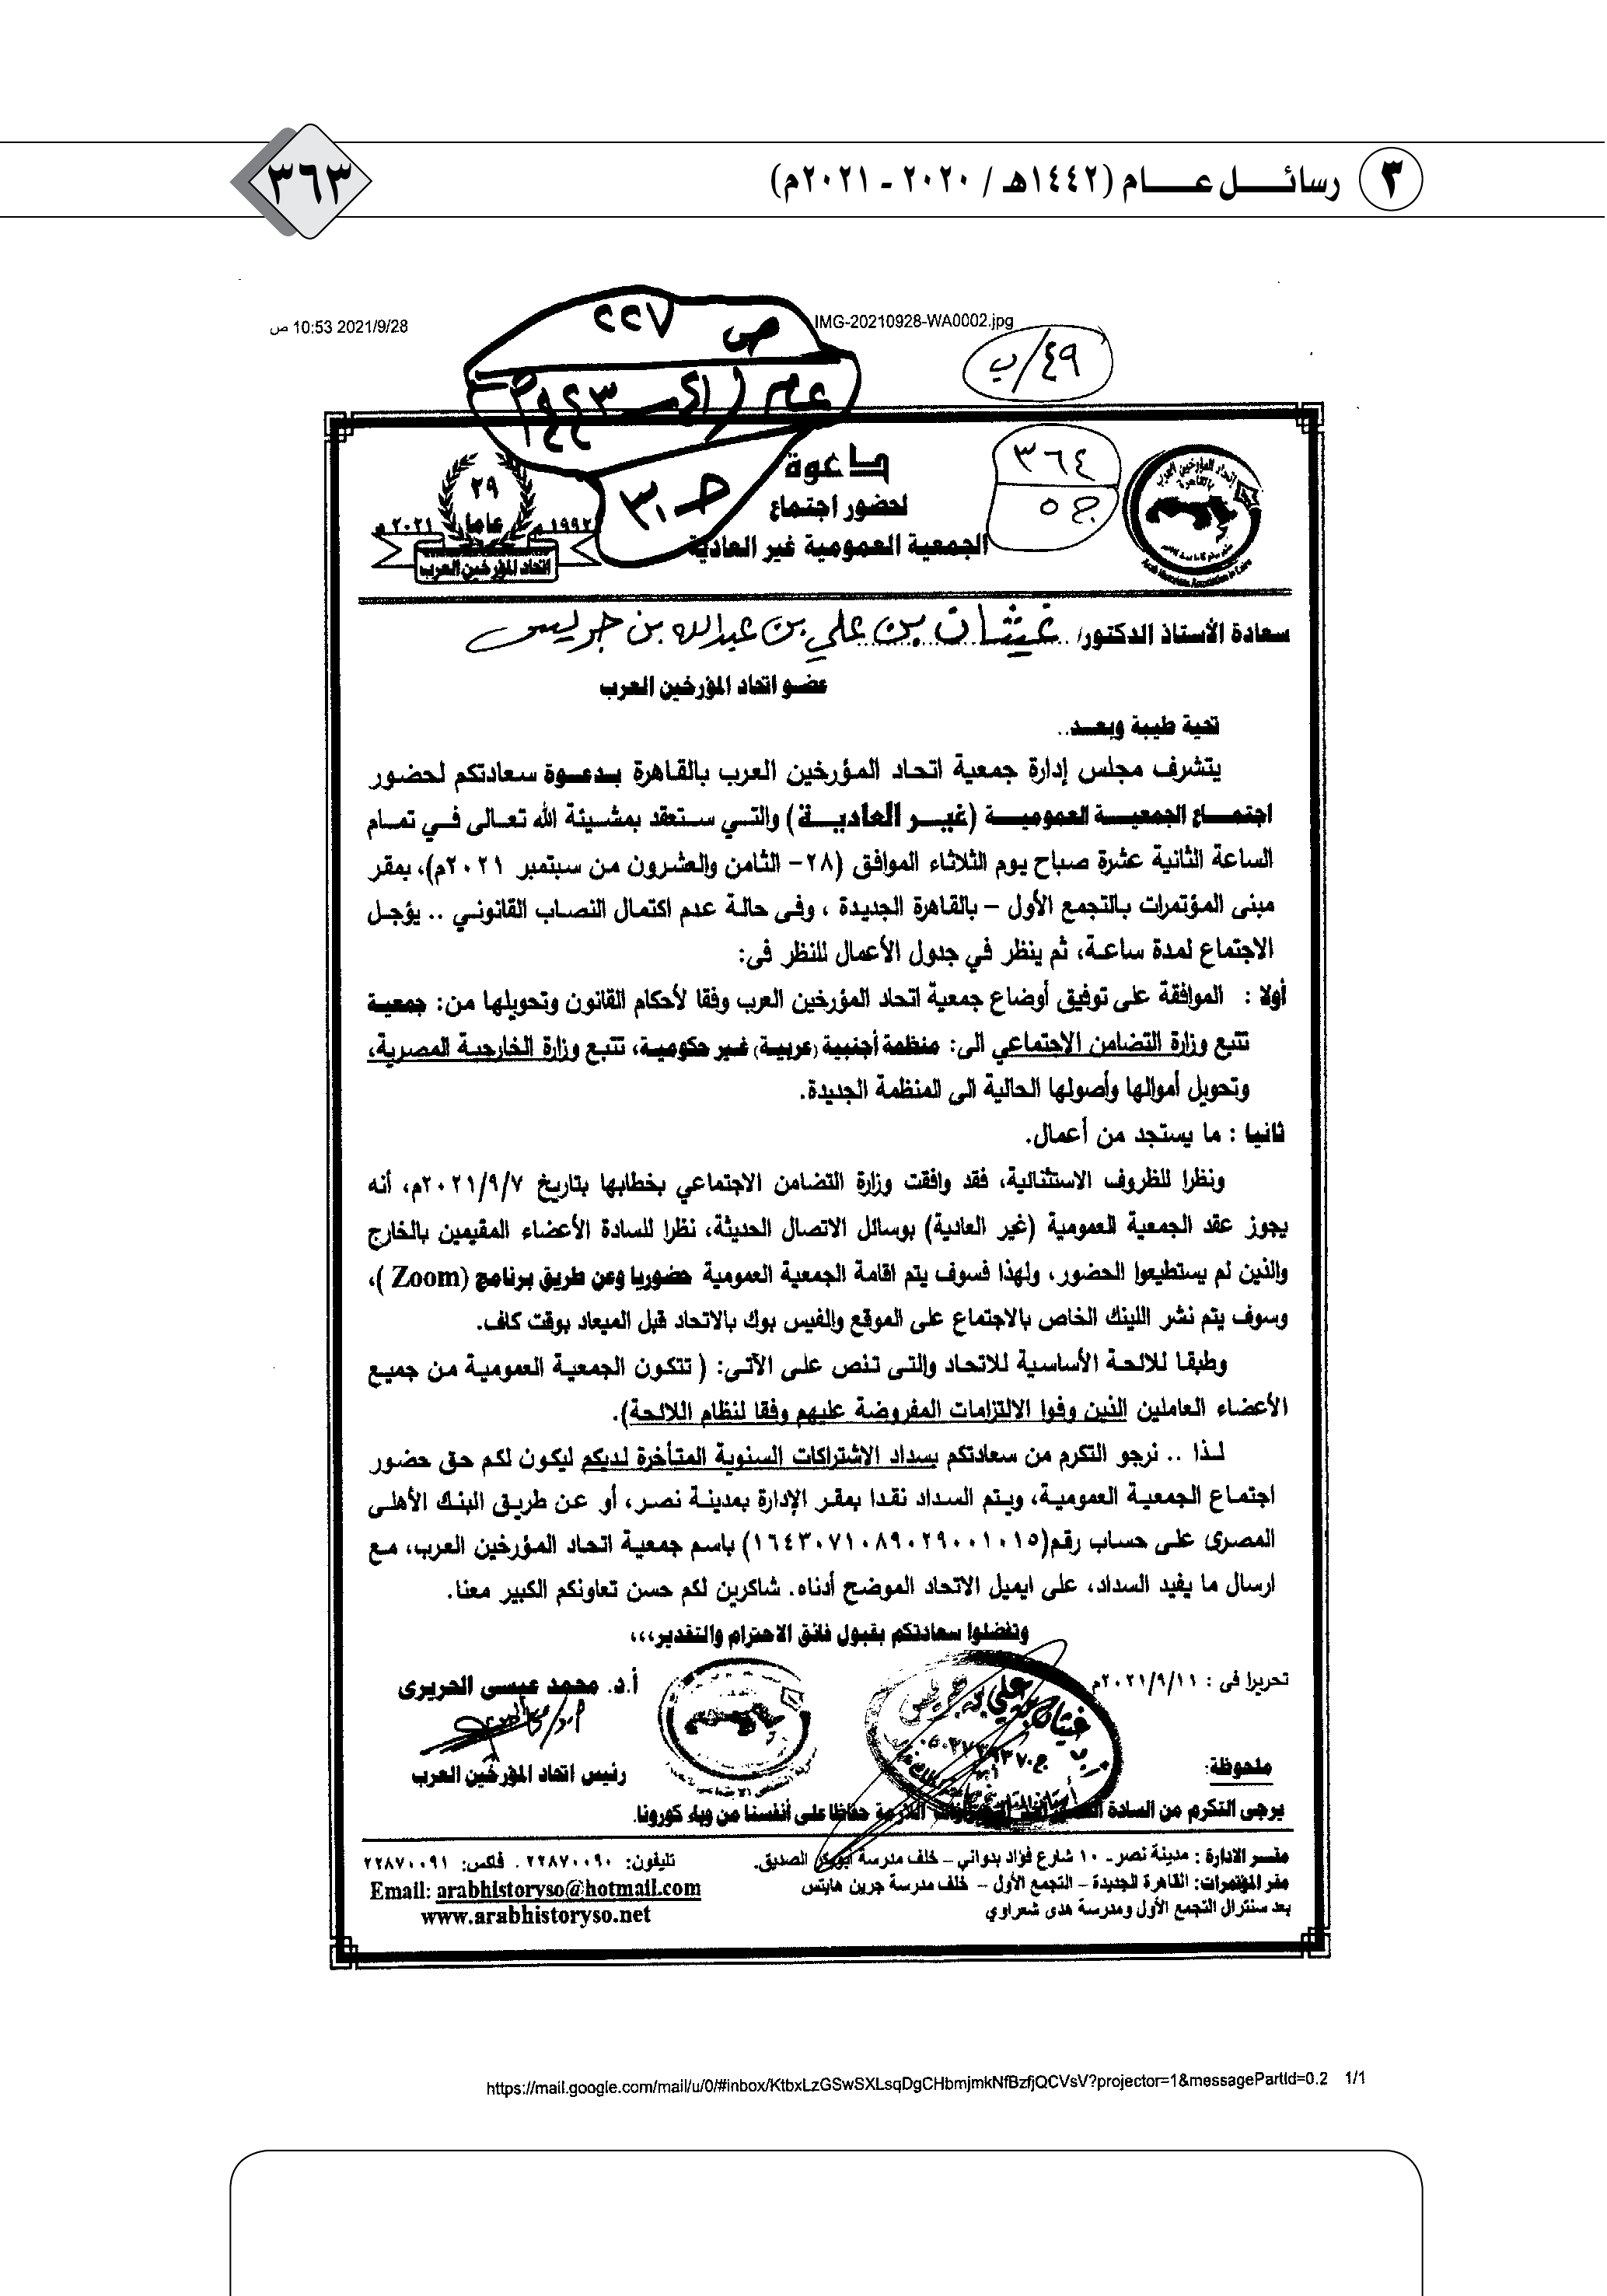 ٣ رسائل عام (١٤٤٢هـ / ٢٠٢٠ - ٢٠٢١م) ٣٦٣
10:53 2021/9/28 ص
IMG-20210928-WA0002.jpg
ص ٢٢٧
٤٩/ب
٣٦٤
ج ٥
دعوة
لحضور اجتماع
الجمعية العمومية غير العادية
اتحاد المؤرخين العرب
بالقاهرة
Arab Historians Association in Cairo
٢٩
عاما
١٩٩٢م
٢٠٢١م
اتحاد المؤرخين العرب
سعادة الأستاذ الدكتور/ غيثان بن علي بن عبدالله بن جريس
عضو اتحاد المؤرخين العرب
تحية طيبة وبعد..
يتشرف مجلس إدارة جمعية اتحاد المؤرخين العرب بالقاهرة بدعوة سعادتكم لحضور
اجتماع الجمعية العمومية (غير العادية) والتي ستعقد بمشيئة الله تعالى في تمام
الساعة الثانية عشرة صباح يوم الثلاثاء الموافق (٢٨- الثامن والعشرون من سبتمبر ٢٠٢١م)، بمقر
مبنى المؤتمرات بالتجمع الأول – بالقاهرة الجديدة ، وفى حالة عدم اكتمال النصاب القانوني .. يؤجل
الاجتماع لمدة ساعة، ثم ينظر في جدول الأعمال للنظر فى:
أولا : الموافقة على توفيق أوضاع جمعية اتحاد المؤرخين العرب وفقا لأحكام القانون وتحويلها من: جمعية
تتبع وزارة التضامن الاجتماعي الى: منظمة أجنبية (عربية) غير حكومية، تتبع وزارة الخارجية المصرية،
وتحويل أموالها وأصولها الحالية الى المنظمة الجديدة.
ثانيا : ما يستجد من أعمال.
ونظرا للظروف الاستثنائية، فقد وافقت وزارة التضامن الاجتماعي بخطابها بتاريخ ٢٠٢١/٩/٧م، أنه
يجوز عقد الجمعية العمومية (غير العادية) بوسائل الاتصال الحديثة، نظرا للسادة الأعضاء المقيمين بالخارج
والذين لم يستطيعوا الحضور، ولهذا فسوف يتم اقامة الجمعية العمومية حضوريا وعن طريق برنامج (Zoom )،
وسوف يتم نشر اللينك الخاص بالاجتماع على الموقع والفيس بوك بالاتحاد قبل الميعاد بوقت كاف.
وطبقا للائحة الأساسية للاتحاد والتى تنص على الآتى: ( تتكون الجمعية العمومية من جميع
الأعضاء العاملين الذين وفوا الالتزامات المفروضة عليهم وفقا لنظام اللائحة).
لذا .. نرجو التكرم من سعادتكم بسداد الاشتراكات السنوية المتأخرة لديكم ليكون لكم حق حضور
اجتماع الجمعية العمومية، ويتم السداد نقدا بمقر الإدارة بمدينة نصر، أو عن طريق البنك الأهلى
المصرى على حساب رقم(١٦٤٣٠٧١٠٨٩٠٢٩٠٠١٠١٥) باسم جمعية اتحاد المؤرخين العرب، مع
ارسال ما يفيد السداد، على ايميل الاتحاد الموضح أدناه. شاكرين لكم حسن تعاونكم الكبير معنا.
وتفضلوا سعادتكم بقبول فائق الاحترام والتقدير،،،
تحريرا فى : ٢٠٢١/٩/١١م
أ.د. محمد عيسى الحريرى
رئيس اتحاد المؤرخين العرب
ملحوظة:
يرجى التكرم من السادة حفاظا على أنفسنا من وباء كورونا.
مقر الادارة : مدينة نصر- ١٠ شارع فؤاد بدواني – خلف مدرسة أبوبكر الصديق. تليفون: ٢٢٨٧٠٠٩٠ . فاكس: ٢٢٨٧٠٠٩١
مقر المؤتمرات: القاهرة الجديدة – التجمع الأول – خلف مدرسة جرين هايتس Email: arabhistoryso@hotmail.com
بعد سنترال التجمع الأول ومدرسة هدى شعراوي www.arabhistoryso.net
https://mail.google.com/mail/u/0/#inbox/KtbxLzGSwSXLsqDgCHbmjmkNfBzfjQCVsV?projector=1&messagePartId=0.2 1/1